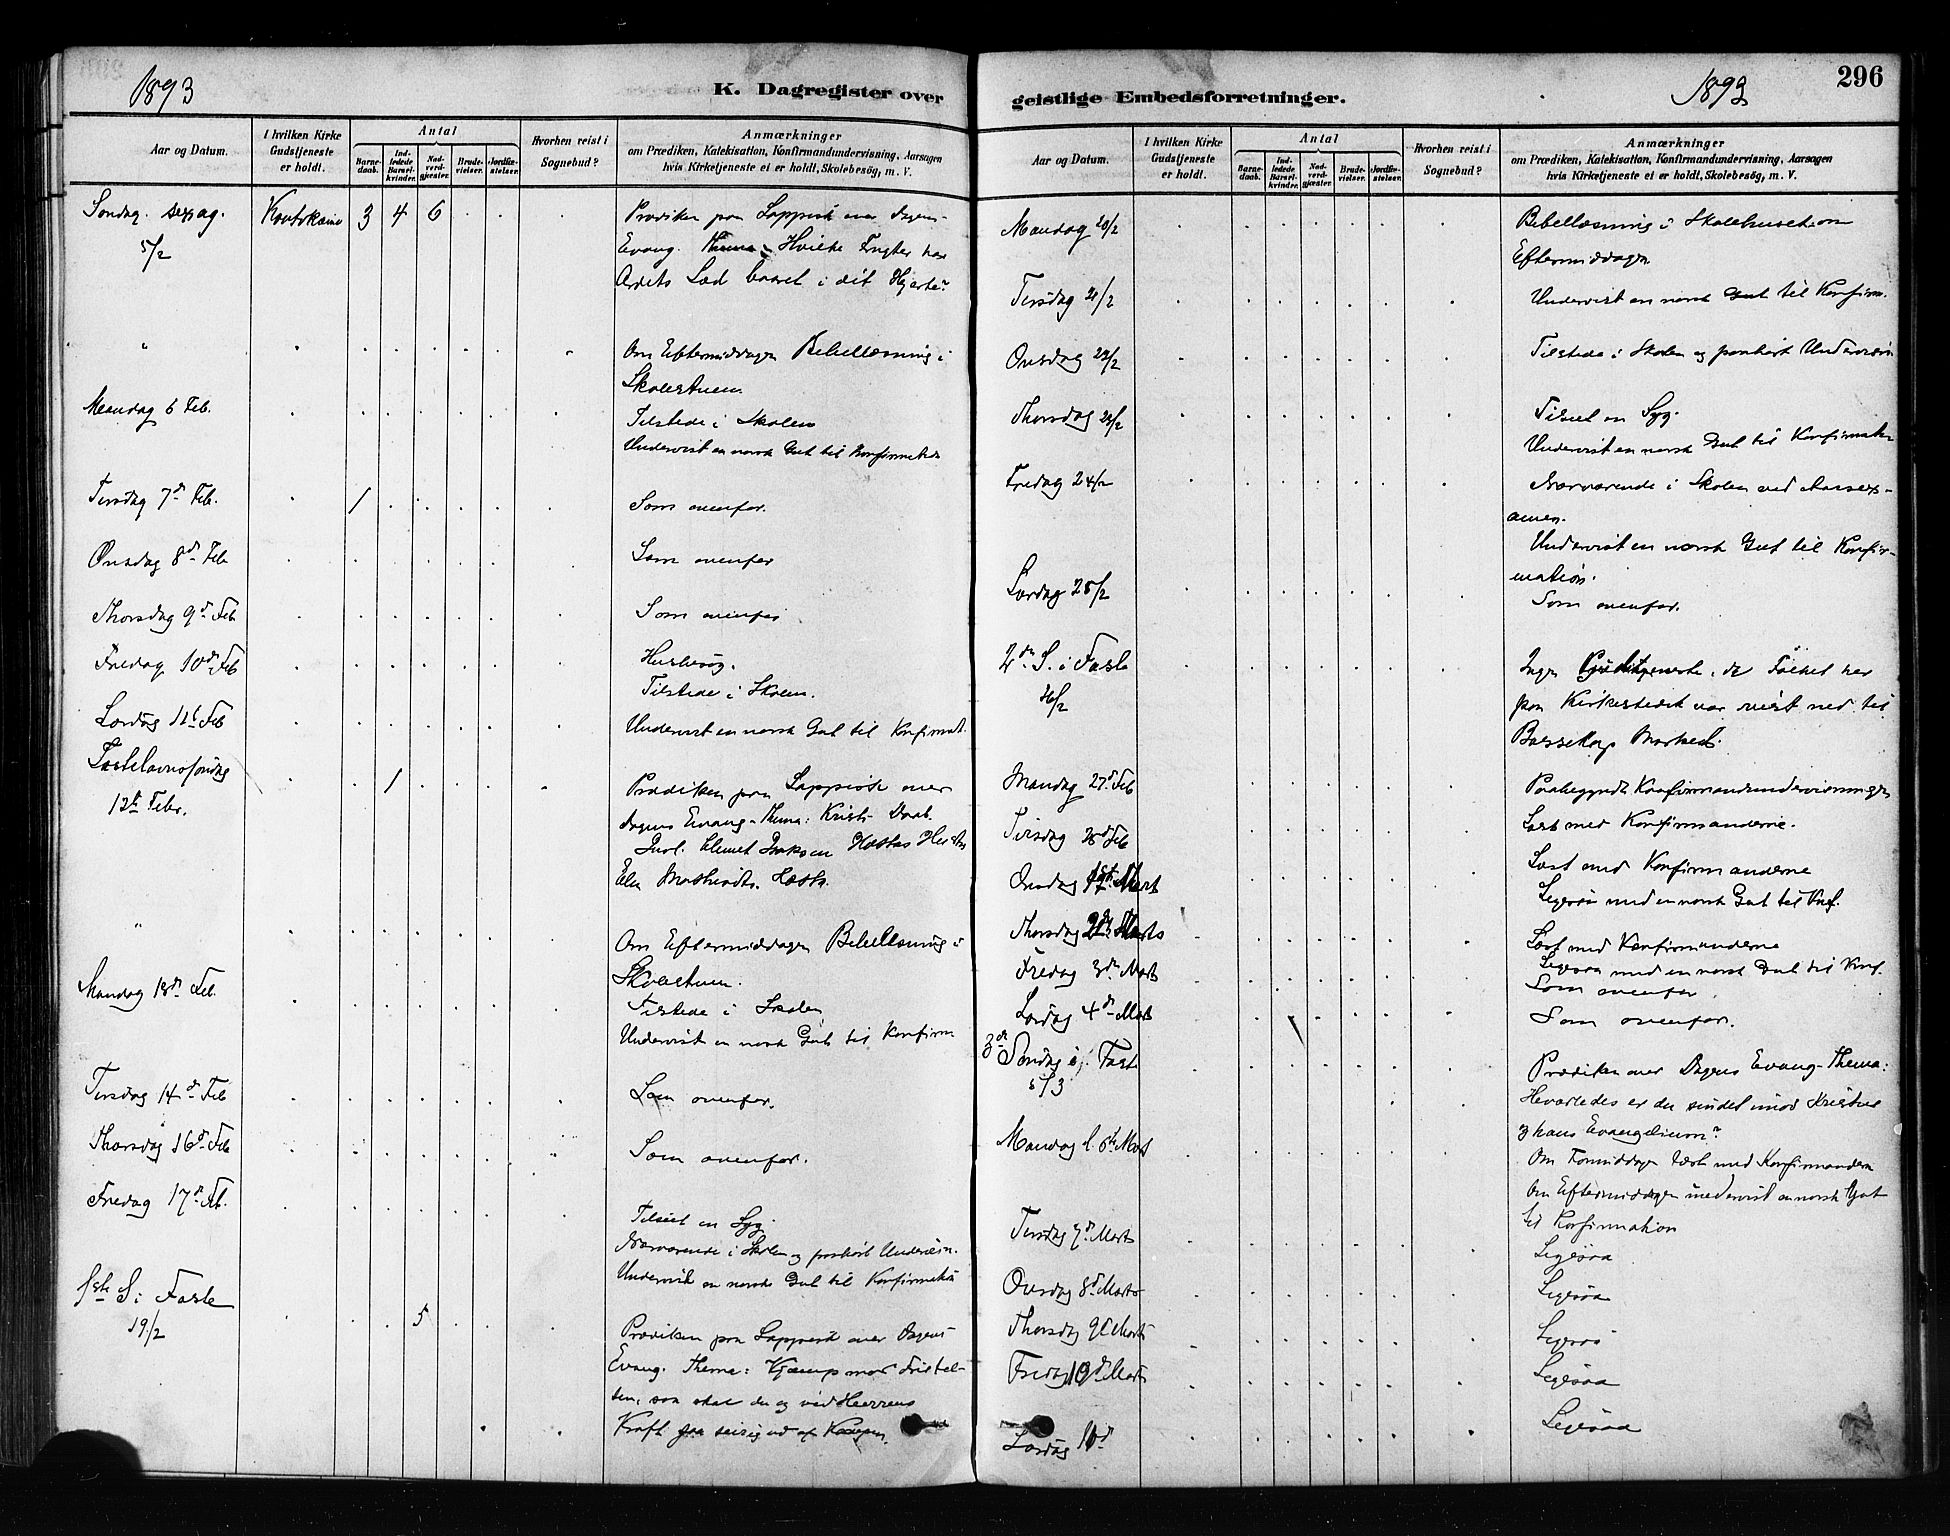 1893
K. Dagregister over
Aar og Datum.
I hvilken Kirke Gudstjeneste er holdt.
Antal
Barne-daab.
Ind-ledede Barsel-kvinder.
Nad-verd-gjæster.
Brude-vielser.
Jordfæ-stelser.
Hvorhen reist i Sognebud?
Anmærkninger
om Prædiken, Katekisation, Konfirmandundervisning, Aarsagen
hvis Kirketjeneste ei er holdt, Skolebesøg, m. V.
Søndag. sexag. Kautokeino 3 4 6 Prædiken paa Lappisk over Dagens
5/2 Evang. Thema: Hvilke Frugter har
Ordets Sæd baaret i dit Hjerte?
" Om Eftermiddagen Bibellæsning i
Skolestuen.
Mandag 6 Feb. Tilstede i Skolen
Undervist en norsk Gut til Konfirmation
Tirsdag 7d Feb. 1 Som ovenfor.
Onsdag 8d Feb Som ovenfor
Thorsdag 9d Feb Som ovenfor
Fredag 10d Feb Husbesøg.
Tilstede i Skolen.
Lørdag 11t Feb Undervist en norsk Gut til Konfirmat.
Fastelavnssøndag 1 Prædiken paa Lappisk over
12te Febr. dagens Evang. Thema: Kristi Daab.
Introl. Clemet Isaksen Hætta
Elen Mathisdtr. Hætta.
" Om Eftermiddagen Bibellæsning i
Skolestuen.
Mandag 13d Feb. Tilstede i Skolen
Undervist en norsk Gut til Konfirm
Tirsdag 14d Feb Som ovenfor.
Thorsdag 16d Feb Som ovenfor.
Fredag 17d Feb. Tilseet en Syg.
Nærværende i Skolen og paahørt Undervisn.
Undervist en norsk Gut til Konfirmation
1ste S. i Faste 5
19/2 Prædiken paa Lappisk over Dagens
Evang. Thema: Kjæmp mod Fristel-
sen, saa skal du og ved Herrens
Kraft gaa seirig ud af Kampen.
geistlige Embedsforretninger.
1893
296
Aar og Datum.
I hvilken Kirke Gudstjeneste er holdt.
Antal
Barne-daab.
Ind-ledede Barsel-kvinder.
Nad-verd-gjæster.
Brude-vielser.
Jordfæ-stelser.
Hvorhen reist i Sognebud?
Anmærkninger
om Prædiken, Katekisation, Konfirmandundervisning, Aarsagen
hvis Kirketjeneste ei er holdt, Skolebesøg, m. V.
Mandag 20/2 Bibellæsning i Skolehuset om
Eftermiddagen
Tirsdag 21/2 Undervist en norsk Gut til Konfirm.
Onsdag 22/2 Tilstede i Skolen og paahørt Undervisn
Thorsdag 23/2 Tilseet en Syg.
Undervist en norsk Gut til Konfirmation
Fredag 24/2 Nærværende i Skolen ved Aarsex-
amen.
Undervist en norsk Gut til Konfir-
mation.
Lørdag 25/2 Som ovenfor.
2den S. i Faste Ingen Gudstjeneste, da Folket her
26/2 paa Kirkestedet var reist ned til
Bossekop Marked.
Mandag 27d Feb Paabegyndt Konfirmandundervisningen
Tirsdag 28d Feb Læst med Konfirmanderne.
Onsdag 1ste Marts Læst med Konfirmanderne
Ligesaa med en norsk Gut til Konf.
Thorsdag 2den Marts Læst med Konfirmanderne
Ligesaa med en norsk Gut til Konf.
Fredag 3de Marts Som ovenfor.
Lørdag 4de Marts Som ovenfor.
3de Søndag i Fast.
5/3 Prædiken over Dagens Evang. Thema:
Hvorledes er du sindet imod Kristus
og hans Evangelium?
Mandag d. 6te Marts Om Formiddagen læst med Konfirmanderne
Om Eftermiddagen undervist en norsk Gut
til Konfirmation
Tirsdag 7d Marts Ligesaa
Onsdag 8d Marts Ligesaa
Thorsdag 9d Marts Ligesaa
Fredag 10d Marts Ligesaa
Lørdag 11d Ligesaa